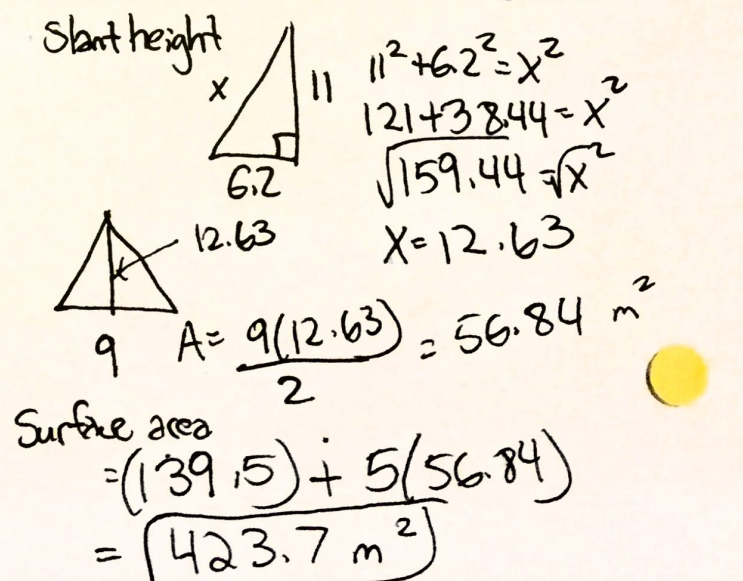 Slant height
x
11
6.2
11² + 6.2² = x²
121 + 38.44 = x²
√159.44 = √x²
x = 12.63
12.63
9
A = 9(12.63) / 2 = 56.84 m²
Surface area
= (139.5) + 5(56.84)
= 423.7 m²